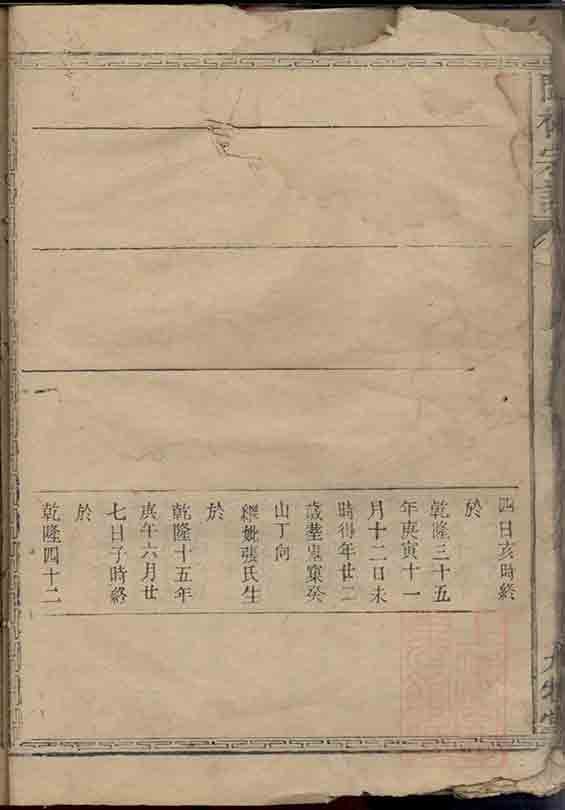 四日亥時終
於
乾隆三十五
年庚寅十一
月十二日未
時得年廿二
歲塟鬼窠癸
山丁向
繼妣張氏生
於
乾隆十五年
庚午六月廿
七日子時終
於
乾隆四十二